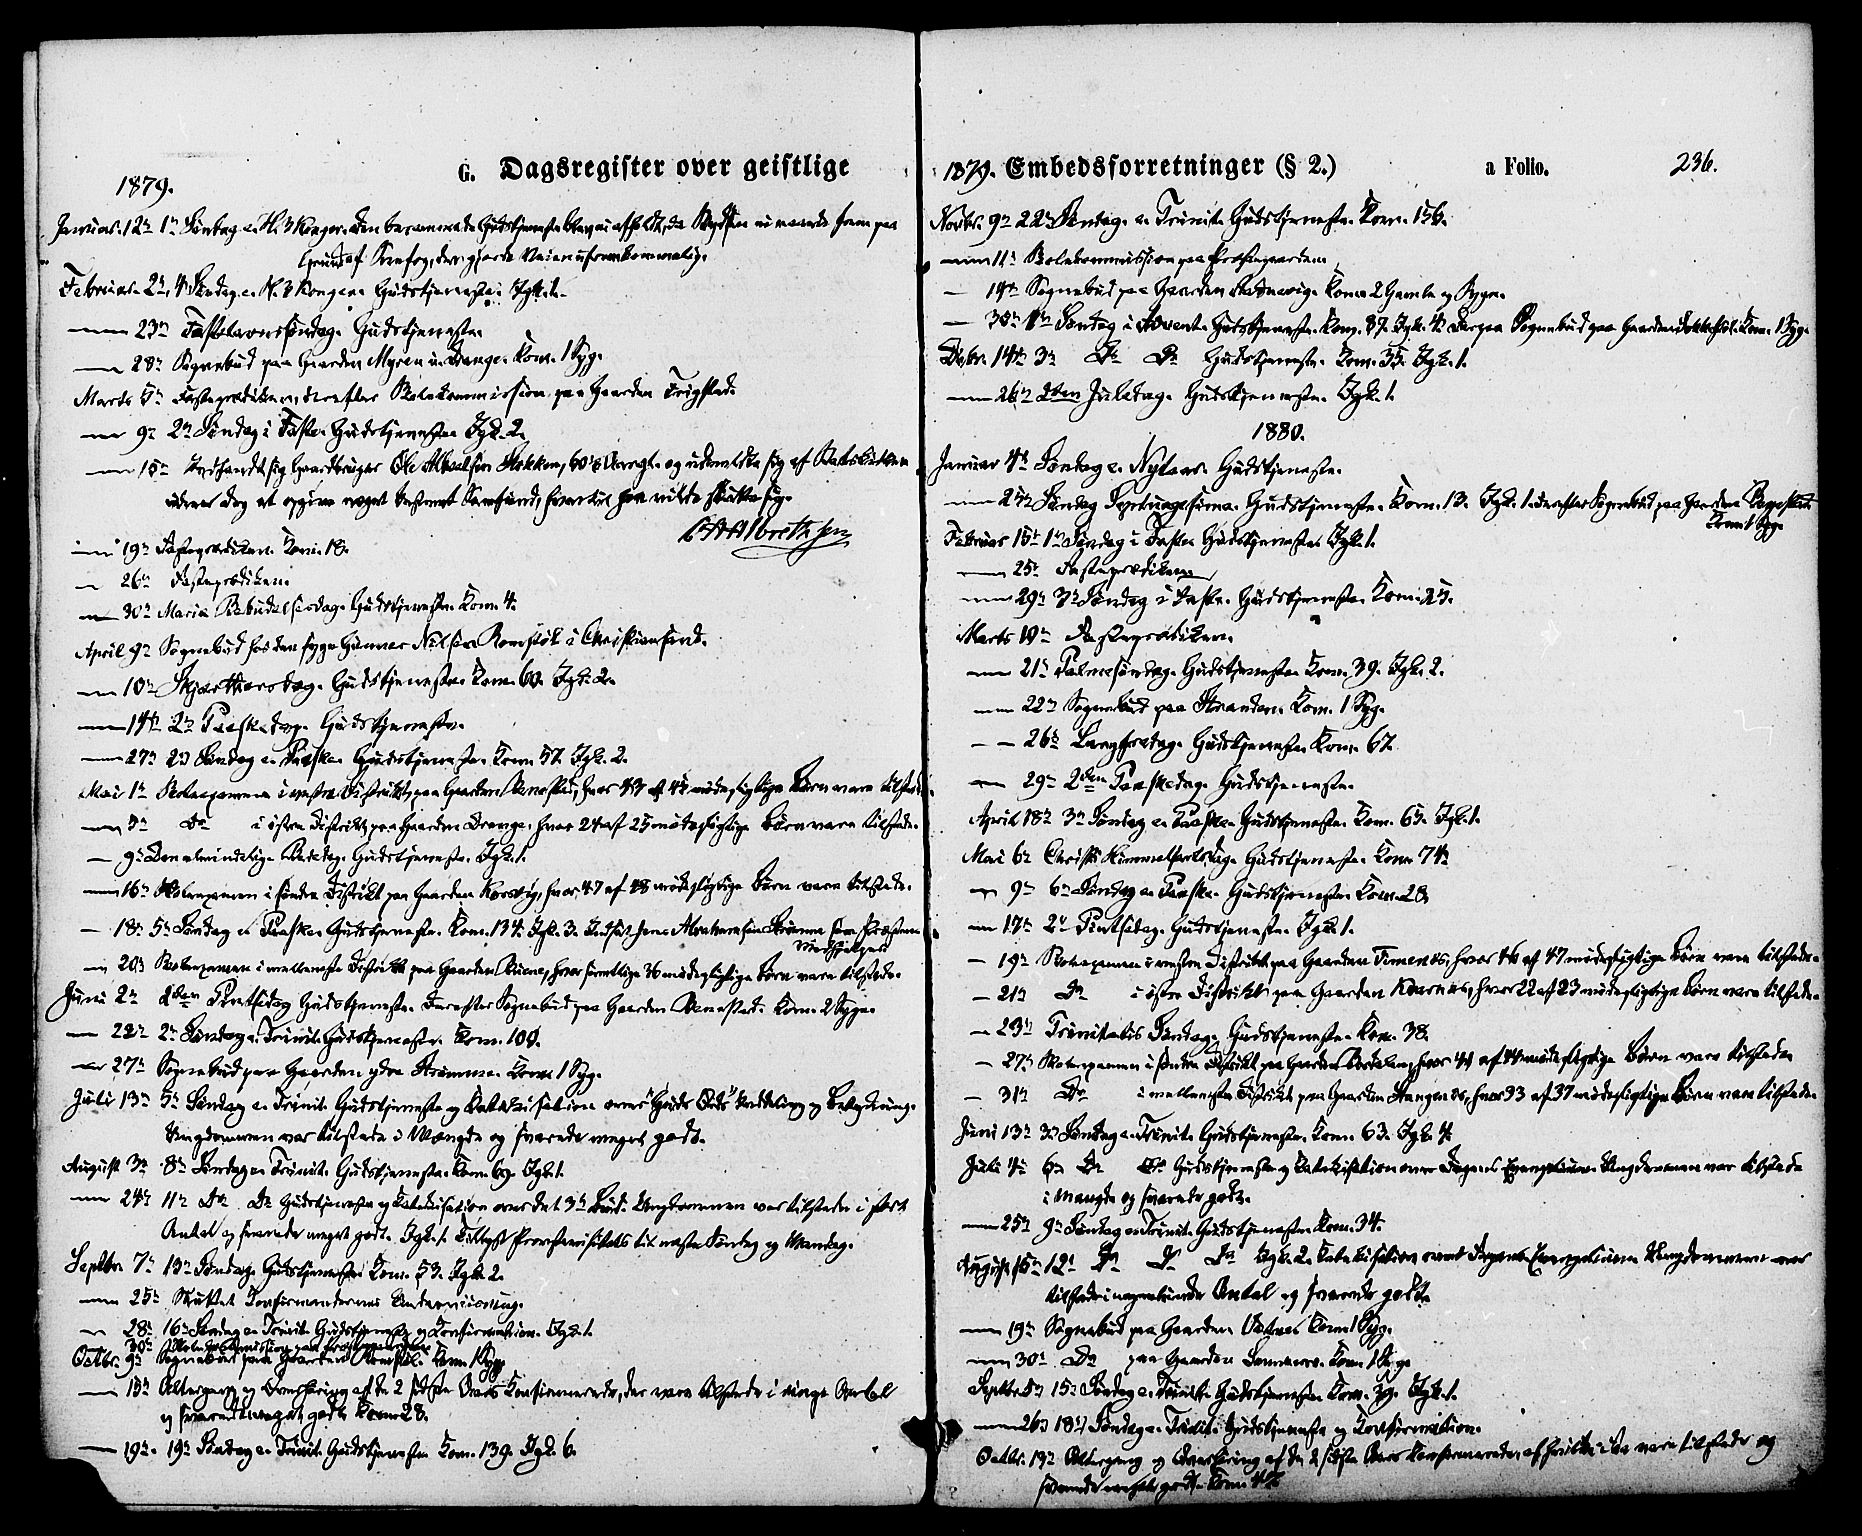 G. Dagsregister over geistlige
1879.
Januar. 12te 1te Søndag e. H. 3 Konger. Den berammede Gudstjeneste blev ei afholdt, da Præsten ei naaede frem paa
Grund af Snefog, der gjorde Veien ufremkommelig.
Februar. 2den, 4 Søndag e. H. 3 Konger. Gudstjeneste. Jgk. 1.
— 23de Fastelavnssøndag. Gudstjeneste.
— 28de Sognebud paa Gaarden Myren u. Drange. Kom. 1 Syg.
Marts 5te Fasteprædiken, derefter Skolekommission paa Gaarden Trygstad.
— 9de 2den Søndag i Faste. Gudstjeneste. Jgk. 2.
— 15de Indfandt sig Gaardbruger Ole Akselsen Stokken, 60 Aar gl. og udmeldte sig af Statskirken
uden dog at opgive noget bestemt Samfund, hvortil han vilde slutte sig.
Albrethsen
— 19de Fasteprædiken. Kom. 18.
— 26de Fasteprædiken.
— 30te Maria Bebudelsesdag. Gudstjeneste. Kom. 4.
April 9de Sognebud hos den syge Gunner Nilsen Romstøl i Christiansand.
— 10de Skjærthorsdag. Gudstjeneste. Kom. 60. Jgk. 2.
— 14de 2den Paaskedag. Gudstjeneste.
— 27de 2den Søndag e. Paaske. Gudstjeneste. Kom. 57. Jgk. 2.
Mai 1te Skoleexamen i vestre Distrikt, paa Gaarden, hvor 43 af 45 mødepligtige Børn vare tilstede.
— 3de Do i østre Distrikt paa Gaarden Drange, hvor 24 af 25 mødepligtige Børn vare tilstede.
— 9de Den almindelige Bededag. Gudstjeneste. Jgk. 1.
— 16de Skoleexamen i søndre Distrikt paa Gaarden Korsvig, hvor 47 af 48 mødepligtige Børn vare tilstede.
— 18de 5te Søndag e. Paaske. Gudstjeneste. Kom. 134. Jgk. 3. Indsat Jens Abrahamsen Strømme som Præstens
Medhjelper
— 20de Skoleexamen i mellemste Distrikt paa Gaarden, hvor samtlige 36 mødepligtige Børn vare tilstede.
Juni 2den 2den Pintsedag Gudstjeneste. Derefter Sognebud paa Gaarden. Kom. 2 Syge.
— 22de 2den Søndag e. Trinit. Gudstjeneste. Kom. 100.
— 27de Sognebud paa Gaarden ydre Strømme. Kom. 1 Syg.
Juli 13de 5te Søndag e. Trinit. Gudstjeneste og Katekisation over "Guds Ords" Inddeling og Betydning.
Ungdommen var tilstede i Mængde og svarede meget godt.
August 3de 8de Søndag e. Trinit. Gudstjeneste. Kom. 69. Jgk. 1.
— 24de 11te Do Do Gudstjeneste og Katekisation over det 3die Bud. Ungdommen var tilstede i stort
Antal og svarede meget godt. Jgk. 1. Tillyst Provstevisitats til næste Søndag og Mandag.
Septbr. 7de 13de Søndag. Gudstjeneste. Kom. 53. Jgk. 2.
— 25de Sluttet Konfirmandernes Undervisning.
— 28de 16de Søndag e. Trinit. Gudstjeneste og Konfirmation. Jgk. 1.
30te Skolekommission paa Præstegaarden.
Octbr. 9de Sognebud paa Gaarden Romstøl. Kom. 1 Syg.
— 13de Altergang og Overhøring af de 2 sidste Aars Konfirmerede, der vare tilstede i ringe Antal
og svarede meget godt. Kom. 28.
— 19de. 19de Søndag e. Trinit. Gudstjeneste. Kom. 139. Jgk. 6.
1879. Embedsforretninger (§ 2.) a Folio. 236.
Novbr. 9de 22de Søndag e. Trinit. Gudstjeneste. Kom. 156.
— 11te Skolekommission paa Præstegaarden
— 14de Sognebud paa Gaarden. Kom. 2 Gamle og Syge.
— 30te 1ste Søndag i Advent. Gudstjeneste. Kom. 87. Jgk. 4. Derpaa Sognebud paa Gaarden. Kom. 1 Syg.
Debr. 14de 3de Do Do Gudstjeneste. Kom. 35. Jgk. 1.
— 26de 2den Juledag. Gudstjeneste. Jgk. 1.
1880.
Januar 4de Søndag e. Nytaar. Gudstjeneste.
— 25de Søndag Septuagesima. Gudstjeneste. Kom. 13. Jgk. 1. Derefter Sognebud paa Gaarden
Kom. 1 Syg.
Februar 15de 1ste Søndag i Faste. Gudstjeneste. Jgk. 1.
— 25de Fasteprædiken
— 29de 3de Søndag i Faste. Gudstjeneste. Kom. 25.
Marts 10de Fasteprædiken.
— 21de Palmesøndag. Gudstjeneste. Kom. 39. Jgk. 2.
— 22de Sognebud paa Stranden. Kom. 1 Syg.
— 26de Langfredag. Gudstjeneste. Kom. 67.
— 29de 2den Paaskedag. Gudstjeneste.
April 18de 3de Søndag e. Paaske. Gudstjeneste. Kom. 65. Jgk. 1.
Mai 6te Christi Himmelfartsdag. Gudstjeneste. Kom. 74.
— 9de 6te Søndag e. Paaske. Gudstjeneste. Kom. 28.
— 17de 2den Pintsedag. Gudstjeneste. Jgk. 1.
— 19de Skoleexamen i vestre Distrikt paa Gaarden Timenes, hvor 46 af 47 mødepligtige Børn vare tilstede.
— 21de Do i østre Distrikt paa Gaarden Kvarnes, hvor 22 af 23 mødepligtige Børn vare tilstede.
— 23de Trinitatis Søndag. Gudstjeneste. Kom. 38.
— 27de Skoleexamen i søndre Distrikt paa Gaarden, hvor 41 af 44 mødepligtige Børn vare tilstede
— 31te Do i mellemste Distrikt paa Gaarden Stangenes, hvor 33 af 37 mødepligtige Børn vare tilstede.
Juni 13de 3de Søndag e. Trinit. Gudstjeneste. Kom. 63. Jgk. 4.
Juli 4de 6te Do Do Gudstjeneste og Katekisation over Dagens Evangelium. Ungdommen var tilstede
i Mængde og svarede godt.
— 25de 9de Søndag e. Trinit. Gudstjeneste. Kom. 34.
August 15de 12te Do Do Do Jgk. 2. Katekisation over Dagens Evangelium. Ungdommen var
tilstede i Antal og svarede godt.
— 19de Sognebud paa Gaarden. Kom. 1 Syg.
— 30te Do paa Gaarden. Kom. 1 Syg.
Septbr. 5te 15de Søndag e. Trinit. Gudstjeneste. Kom. 39. Jgk. 1.
— 26de 18de Søndag e. Trinit. Gudstjeneste og Konfirmation.
Octbr. 13de Altergang og Overhøring af de 2 sidste Aars Konfirmerede, af hvilke vare tilstede og
svarede godt. Kom. 42.